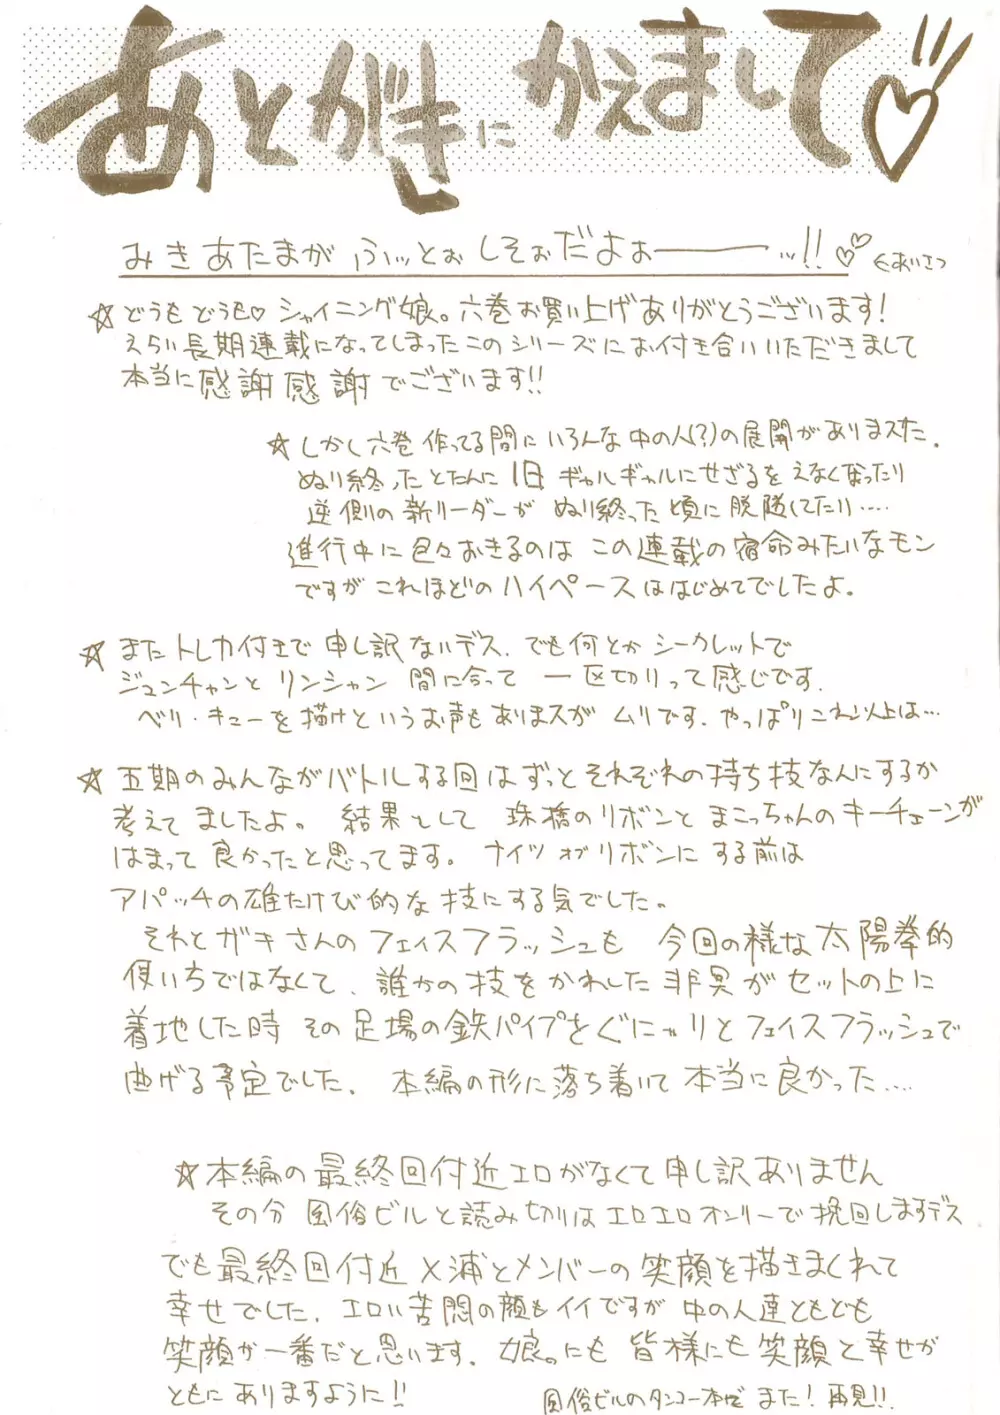 あとがきにかえまして♡
みきあたまが ふぃっとぉ しそぉだよぉーーッ!!♡♡ ←あいさつ
☆どうもどうも♡シャイニング娘。六巻お買い上げありがとうございます!
えらい長期連載になってしまったこのシリーズにお付き合いいただきまして
本当に感謝感謝でございます!!
☆しかし六巻作ってる間にいろんな中の人(?)の展開がありまスた.
ぬり終ったとたんに旧ギャルギャルにせざるをえなくなったり
逆側の新リーダーがぬり終った頃に脱隊してたり.....
進行中に色々おきるのはこの連載の宿命みたいなモン
ですがこれほどのハイペースははじめてでしたよ。
☆またトレカ付きで申し訳ないデス. でも何とかシークレットで
ジュンチャンとリンシャン 間に合って 一区切りって感じです.
ベリ・キューを描けというお声もありまスがムリです. やっぱりこれ以上は…
☆五期のみんながバトルする回はずっとそれぞれの持ち技なんにするか
考えてましたよ。 結果として 珠橋のリボンとまこっちゃんのキーチェーンが
はまって良かったと思ってます。ナイツオブリボンにする前は
アパッチの雄たけび的な技にする気でした。
それとガキさんのフェイスフラッシュも 今回の様な太陽拳的
使いちではなくて、誰かの技をかわした非冥がセットの上に
着地した時その足場の鉄パイプをぐにゃりとフェイスフラッシュで
曲げる予定でした. 本編の形に落ち着いて本当に良かった....
☆本編の最終回付近エロがなくて申し訳ありません
その分 風俗ビルと読み切りはエロエロオンリーで挽回しますデス
でも最終回付近 X浦とメンバーの笑顔を描きまくれて
幸せでした. エロい苦悶の顔もイイですが 中の人達ともども
笑顔が一番だと思います. 娘。にも 皆様にも笑顔と幸せが
ともにありますように!!
風俗ビルのタンコー本でまた! 再見!!